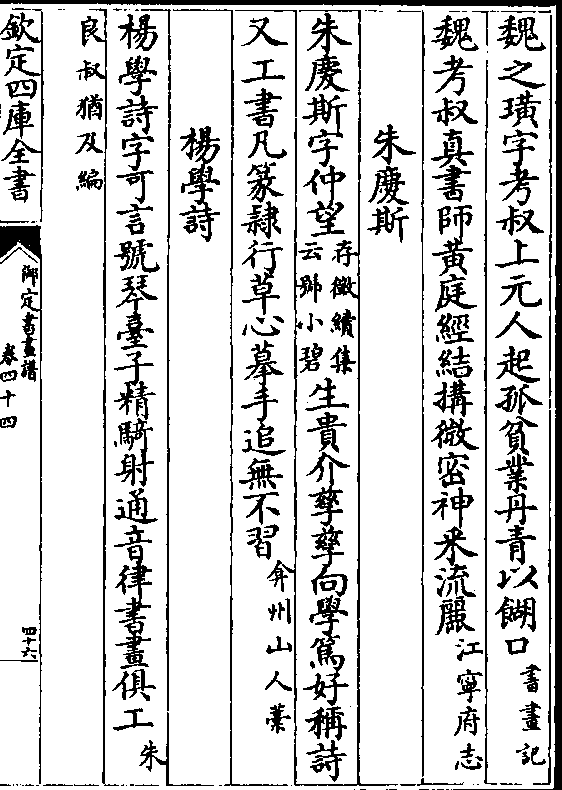 魏之璜字考叔上元人起孤貧業丹青以餬口書畫記
魏考叔真書師黃庭經結搆微密神采流麗江寧府志
朱慶斯
朱慶斯字仲望存徵續集云號小碧生貴介孳孳向學篤好稱詩
又工書凡篆隷行草心摹手追無不習弇州山人藁
楊學詩
楊學詩字可言號琴臺子精騎射通音律書畫俱工朱
良叔猶及編
欽定四庫全書
御定書畫譜
卷四十四
四十六